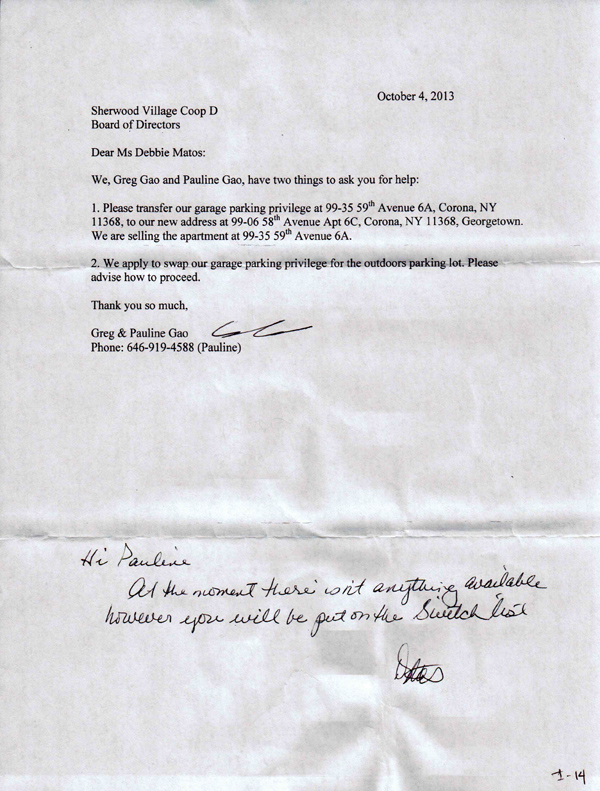 October 4, 2013
Sherwood Village Coop D
Board of Directors
Dear Ms Debbie Matos:
We, Greg Gao and Pauline Gao, have two things to ask you for help:
1. Please transfer our garage parking privilege at 99-35 59th Avenue 6A, Corona, NY
11368, to our new address at 99-06 58th Avenue Apt 6C, Corona, NY 11368, Georgetown.
We are selling the apartment at 99-35 59th Avenue 6A.
2. We apply to swap our garage parking privilege for the outdoors parking lot. Please
advise how to proceed.
Thank you so much,
Greg & Pauline Gao
Phone: 646-919-4588 (Pauline)
Hi Pauline
At the moment there isn't anything available
however you will be put on the Switch list
I-14